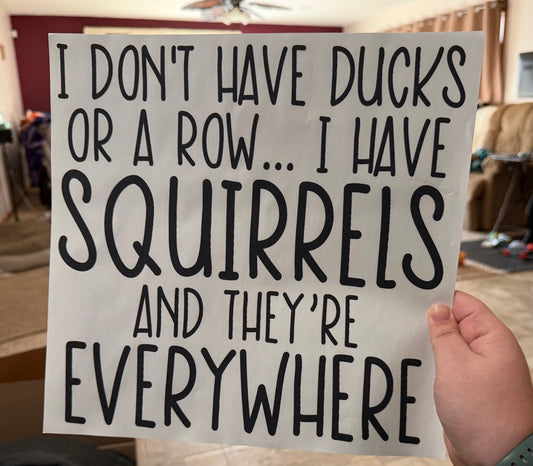 I DON'T HAVE DUCKS
OR A ROW... I HAVE
SQUIRRELS
AND THEY'RE
EVERYWHERE